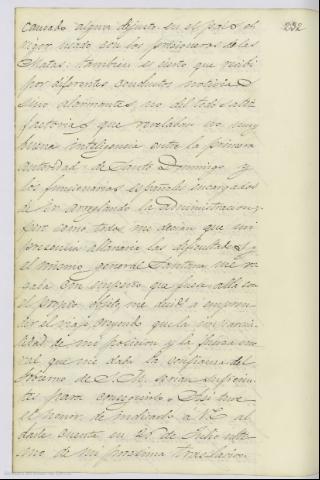 232
causado algun disgusto en el país el
rigor usado con los prisioneros de las
Matas: tambien es cierto que recibí
por diferentes conductos noticias
sino alarmantes, no del todo satis
factorias que revelaban no muy
buena inteligencia entre la primera
autoridad de Santo Domingo y
los funcionarios españoles encargados
de ir arreglando la administracion;
pero como todos me decian que mi
presencia allanaria las dificultades y
el mismo general Santana me ro
gaba con empeño que fuese allá con
el propio objeto, me decidí a empren-
der el viaje creyendo que la imparcia
lidad de mi posicion y la fuerza mo
ral que me daba la confianza del
Gobierno de S. M. serian suficien
tes para conseguirlo. Asi tuve
el honor de indicarlo á V.E. al
darle cuenta en de Julio ulti-
mo de mi proxima traslacion